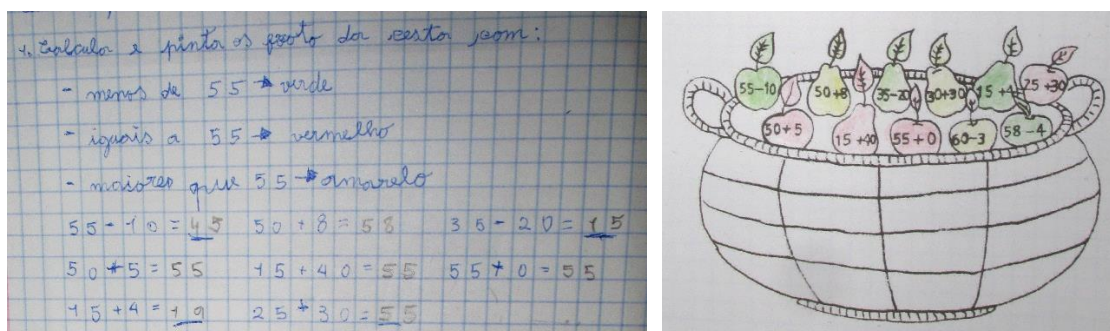 1. Calcular e pinta os fruto da cesta com:
- menos de 55 → verde
- iguais a 55 → vermelho
- maiores que 55 → amarelo
55 - 10 = 45 50 + 8 = 58 35 - 20 = 15
50 + 5 = 55 15 + 40 = 55 55 + 0 = 55
15 + 4 = 19 25 + 30 = 55
55-10 50+8 35-20 30+30 15+4 25+30
50+5 15+40 55+0 60-3 58-4